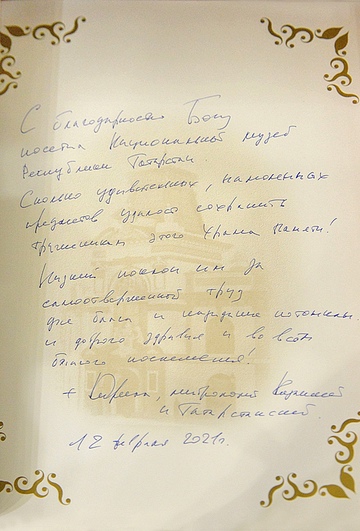 С благодарностью Богу
посетил Национальный музей
Республики Татарстан.
Сколько удивительных, намоленных
предметов удалось сохранить
труженикам этого Храма Памяти!
Низкий поклон им за
самоотверженный труд
для блага и
и доброго здравия и во всём
благого поспешения!
+ Кирилл, митрополит Казанский
и Татарстанский.
12 февраля 2021г.